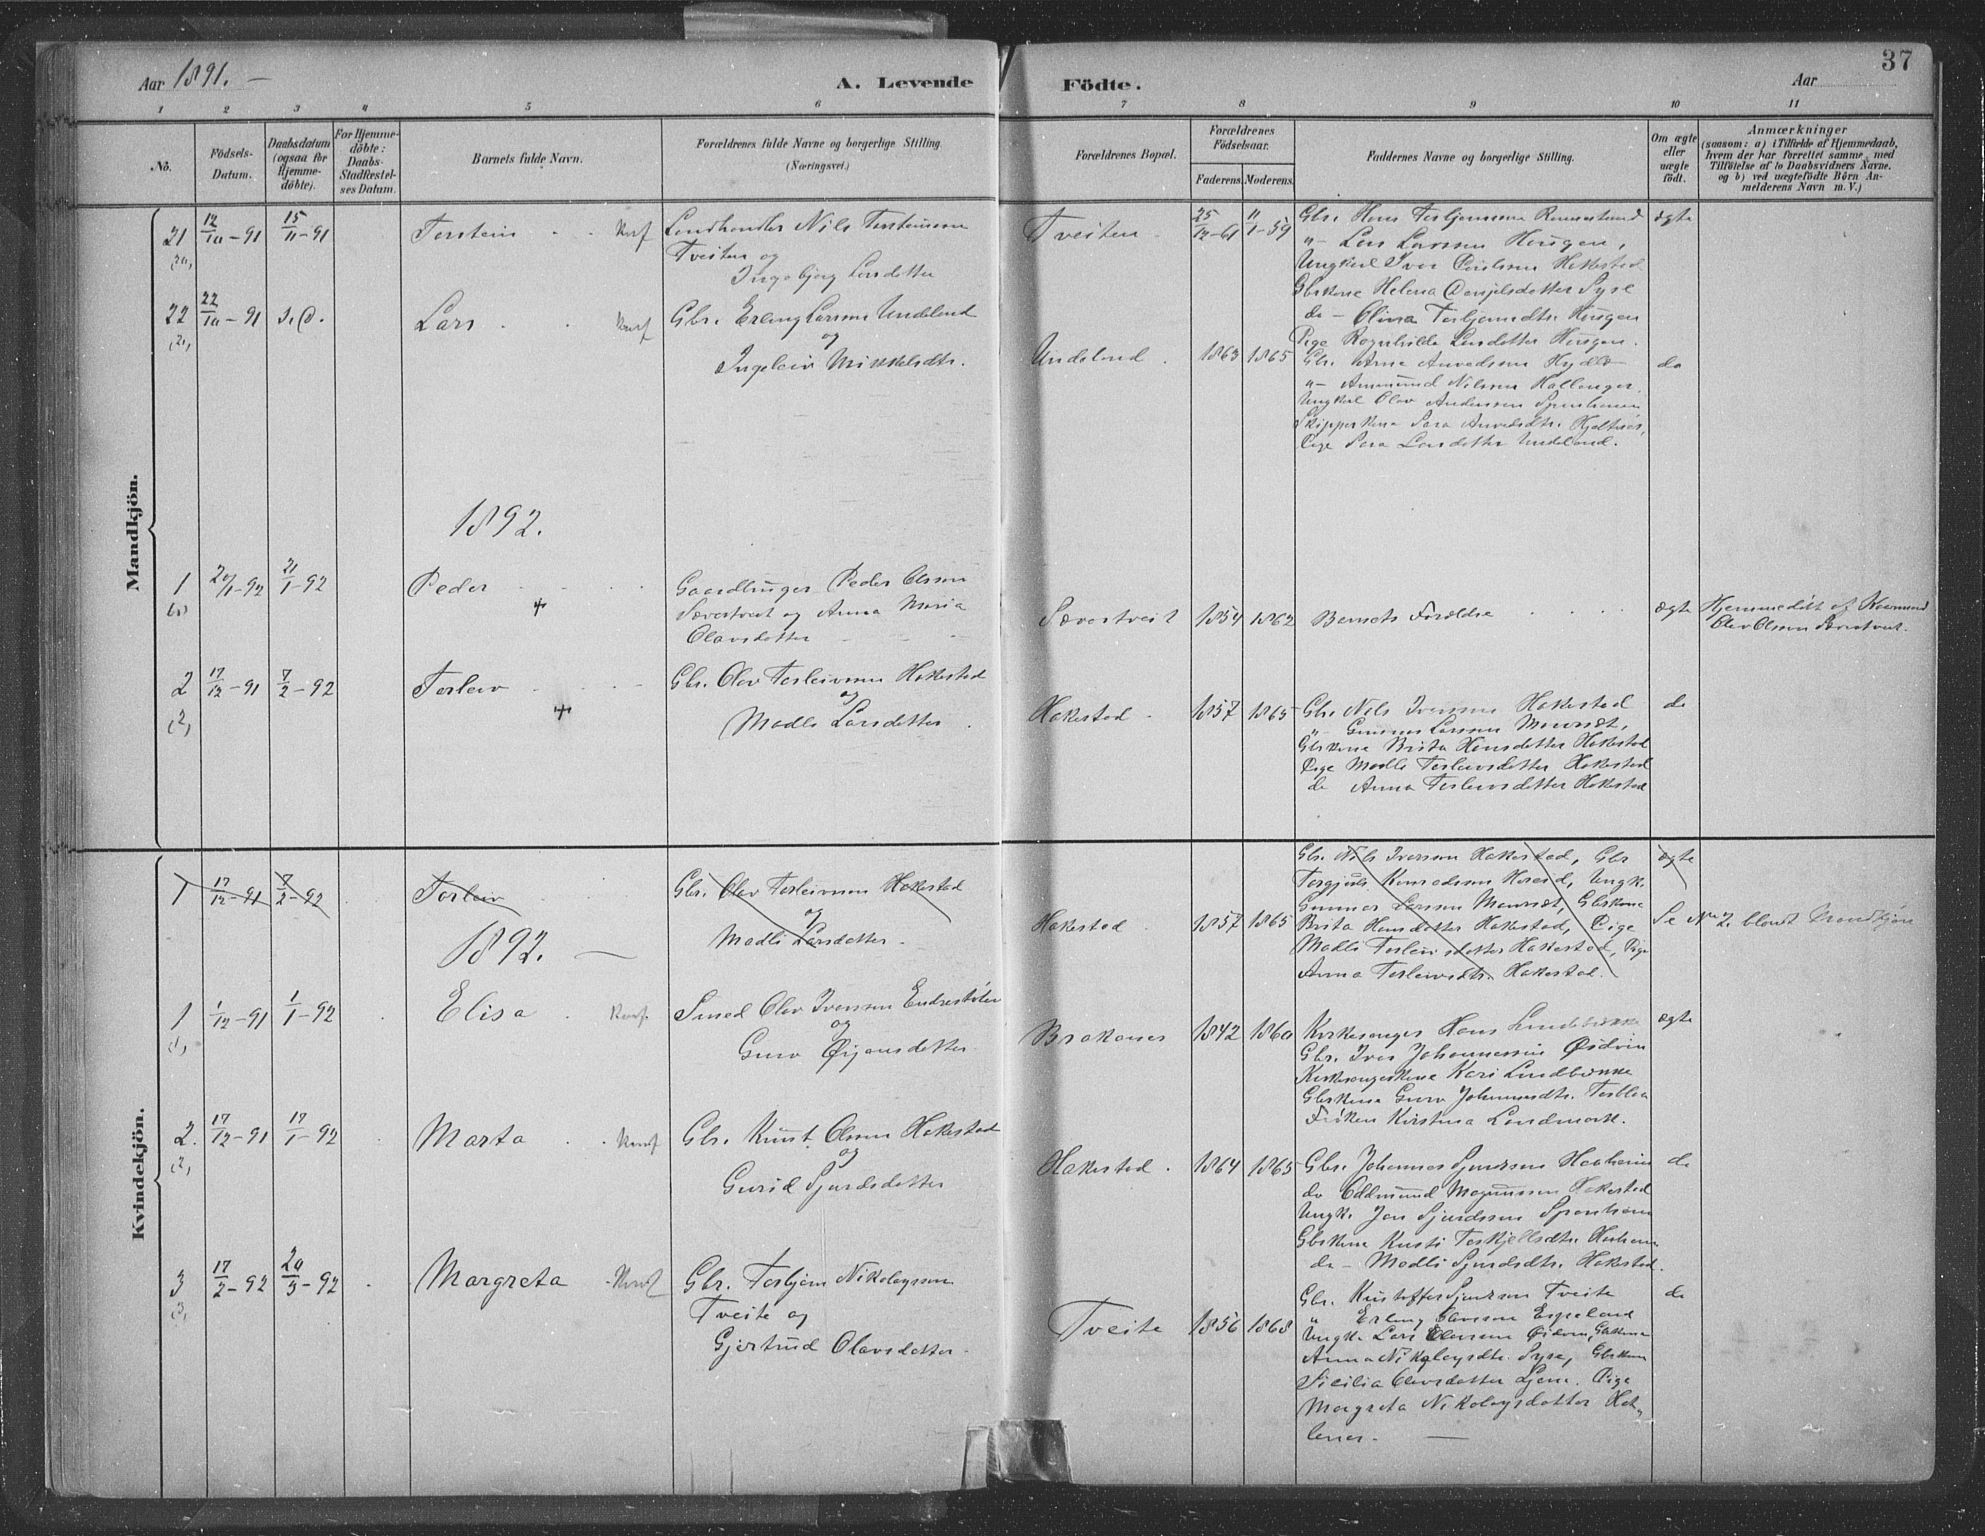 37
Aar 1891. —
A. Levende
Födte.
Aar
1 2 3 4 5 6 7 8 9 10 11
No.
Födsels-Datum.
Daabsdatum (ogsaa for Hjemme-döbte).
For Hjemme-döbte: Daabs-Stadfæstel-ses Datum.
Barnets fulde Navn.
Forældrenes fulde Navne og borgerlige Stilling.
(Næringsvei.)
Forældrenes Bopæl.
Forældrenes Födselsaar.
Faderens. Moderens.
Faddernes Navne og borgerlige Stilling.
Om ægte eller uægte födt.
Anmærkninger
(saasom: a) i Tilfælde af Hjemmedaab,
hvem der har forrettet samme, med
Tilföielse af to Daabsvidners Navne,
og b) ved uægtefödte Börn An-
melderens Navn m. V.)
Mandkjön.
21 12/10-91 15/11-91 Torstein Konf Landhandler Nils Torsteinsen
Tveiten og
Ingebjørg Larsdotter
Tveiten 25/12-61 11/1-59
Gbr. Hans Torbjørnsen
"- Lars Larssen Haugen,
Ungkarl Iver Paulsen Hakestad
Gbrskone Helena Danjelsdotter Syse
do - Olina Torbjørnsdtr. Haugen
Pige Ragnhilda Larsdotter Haugen.
ægte
22 22/10-91 s.D. Lars Konf Gbr. Erling Larssen Undeland
og
Ingeleiv Mikkelsdtr.
Undeland 1863 1865
Gbr. Arne Arvedssen
"- Ammund Nilssen
Ungkarl Olav Anderssen Sponheim
Skipperkone Sara Arvedsdtr.
Pige Sara Larsdotter Undeland.
do
1892.
1 20/1-92 21/1-92 Peder + Gaardbruger Peder Olssen
Sævertveit og Anna Maria
Olavsdotter
Sævertveit 1854 1862 Barnets Forældre ægte Hjemmedöbt af
Olav Olssen Sævertveit.
2 17/12-91 7/2-92 Torleiv + Gbr. Olav Torleivssen Hakestad
og
Madli Larsdotter
Hakestad 1857 1865
Gbr. Nils Iverssen Hakestad
"- Gunnar Larssen
Gbrskone Brita Hansdotter Hakestad
Pige Madli Torleivsdotter Hakestad
do Anna Torleivsdotter Hakestad
do
Kvindekjön.
1 17/12-91 7/2-92 Torleiv Gbr. Olav Torleivssen Hakestad
og
Madli Larsdotter
Hakestad 1857 1865
Gbr. Nils Iverssen Hakestad, Gbr
Torgjuls Konradssen, Ungk.
Gunnar Larssen, Gbrskone
Brita Hansdotter Hakestad, Pige
Madli Torleivsdotter Hakestad, Pige
Anna Torleivsdtr. Hakestad.
ægte
Se No 2 blandt Mandkjön
1892. —
1 1/12-91 1/1-92 Elisa Konf. Smed Olav Iverssen
og
Guro Øijansdotter
Brakanes 1842 1860
Kirkesanger Hans
Gbr. Iver Johannessen Øidvin
Kirkesangerkone Kari
Gbrskone Guro Johannesdtr. Torblaa
Frøken Kirstina Landmark.
ægte
2. 17/12-91 17/1-92 Marta Konf Gbr. Knut Olssen Hakestad
og
Gurid Sjurdsdotter
Hakestad. 1864 1865
Gbr. Johannes Sjurdssen
do Oddmund Magnussen Hakestad
Ungk. Jon Sjurdssen Sponheim
Gbrskone Kristi Torkjellsdtr.
do - Madli Sjurdsdtr. Hakestad.
do
3 17/2-92 20/3-92 Margreta Konf Gbr. Torbjørn Nikolayssen
Tveite og
Gjertrud Olavsdotter
Tveite 1856 1868
Gbr. Kristoffer Sjurssen Tveite
" Erling Espeland
Ungk. Lars Olavssen Øidvin, Gbrkone
Anna Nikolaysdtr. Syse, Gbrkone
Sicilia Olavsdotter Ljone. Pige
Margreta Nikolaysdotter Hal-
lanes.
do